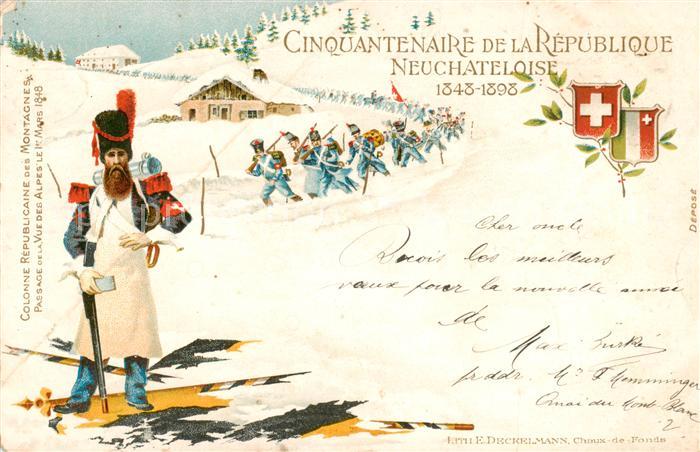 CINQUANTENAIRE DE LA RÉPUBLIQUE
NEUCHATELOISE
1848-1898
COLONNE RÉPUBLICAINE DES MONTAGNES.
PASSAGE DE LA VUE DES ALPES LE 1er MARS 1848
DÉPOSÉ
Cher oncle
Reçois les meilleurs
vœux pour la nouvelle année
de
Max
pr adr. Mr F Hemminger
Quai du Mont Blanc
2
LITH E. DECKELMANN, Chaux-de-Fonds